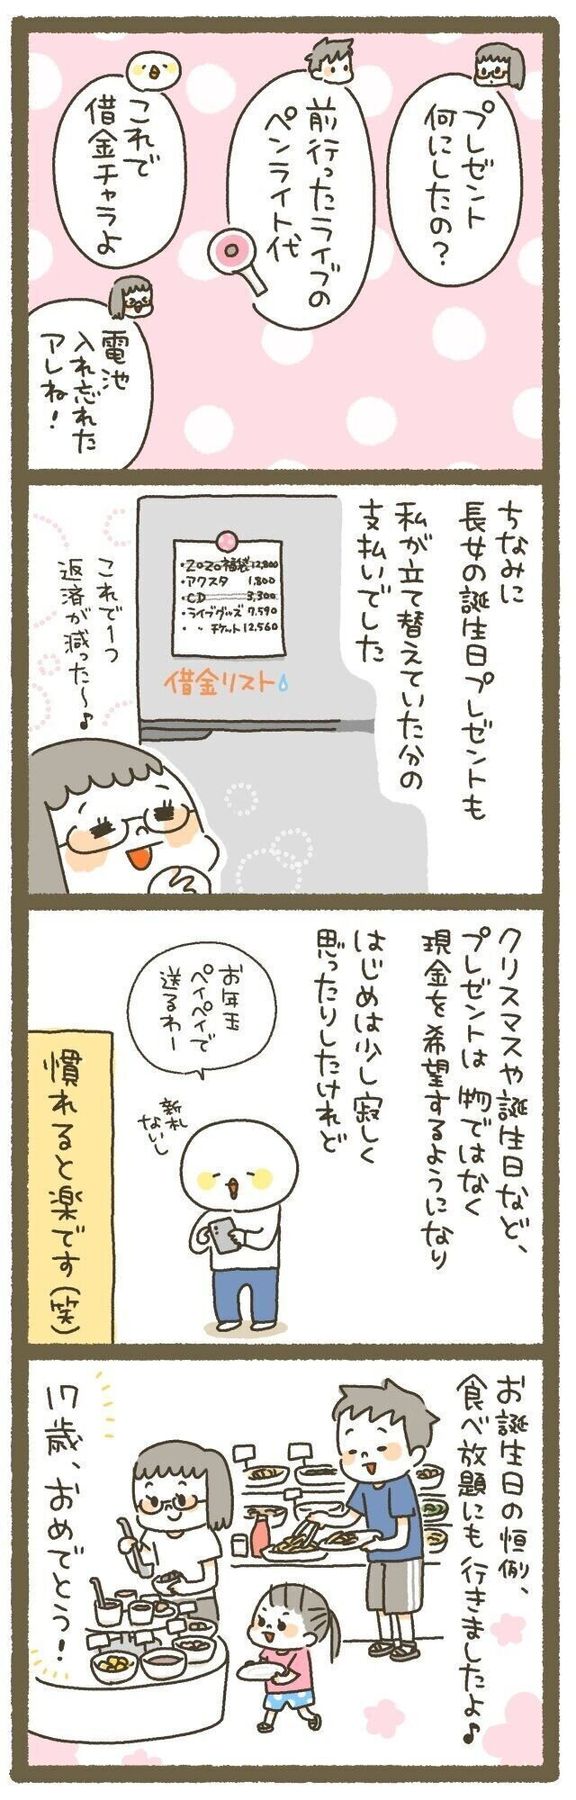 プレゼント
何にしたの?
前行ったライブの
ペンライト代
これで
借金チャラよ
電池
入れ忘れた
アレね!
ちなみに
長女の誕生日プレゼントも
私が立て替えていた分の
支払いでした
・ZOZO福袋12,800
・アクスタ 1,800
・CD 3,300
・ライブグッズ 7,590
・〃 チケット 12,560
借金リスト
これで1つ
返済が減った〜♪
クリスマスや誕生日など、
プレゼントは物ではなく
現金を希望するようになり
はじめは少し寂しく
思ったりしたけれど
お年玉
ペイペイで
送るわー
新札
ないし
慣れると楽です(笑)
お誕生日の恒例、
食べ放題にも行きましたよ♪
17歳、おめでとう!